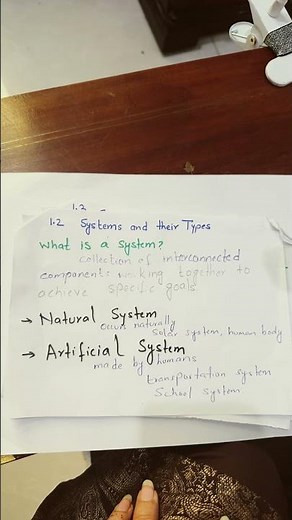 1.2 -
1.2 Systems and their Types
what is a System?
collection of interconnected
components working together to
achieve specific goals
→ Natural System
occur naturally
Solar system, human body
→ Artificial System
made by humans
transportation system
School system